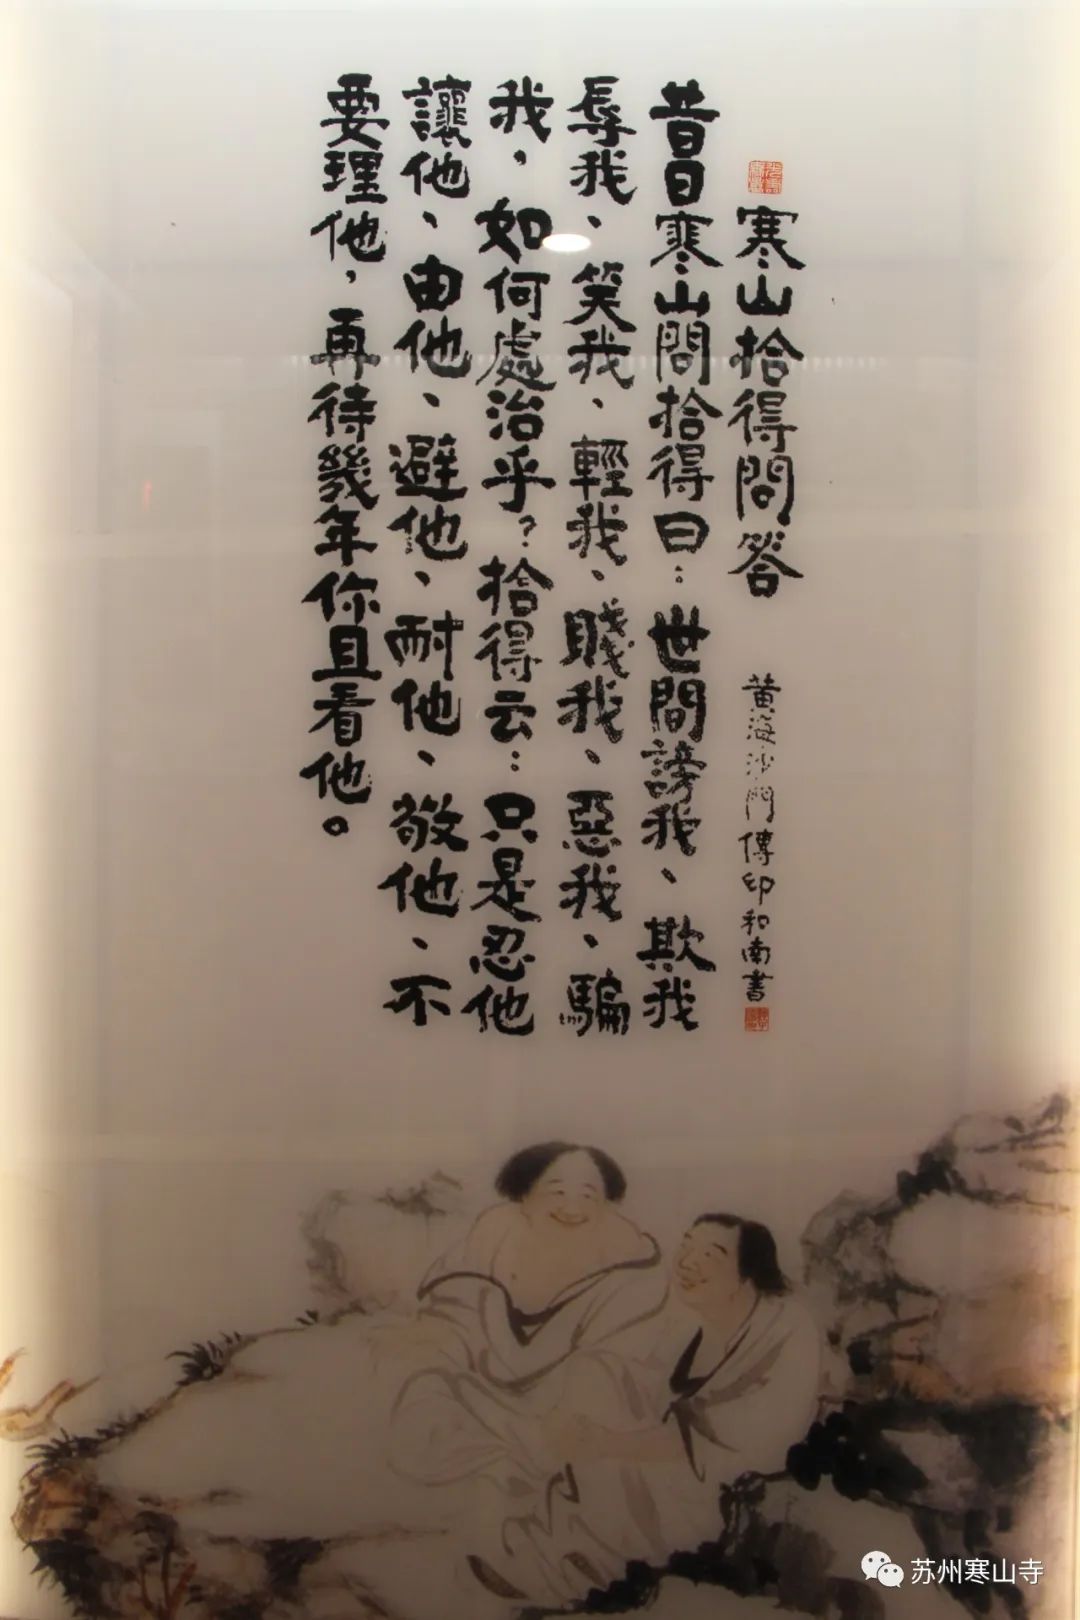 寒山拾得問答
黄海沙門傳印和南書
昔日寒山問拾得曰：世間謗我、欺我
辱我、笑我、輕我、賤我、惡我、騙
我，如何處治乎？拾得云：只是忍他
讓他、由他、避他、耐他、敬他、不
要理他，再待幾年你且看他。
苏州寒山寺